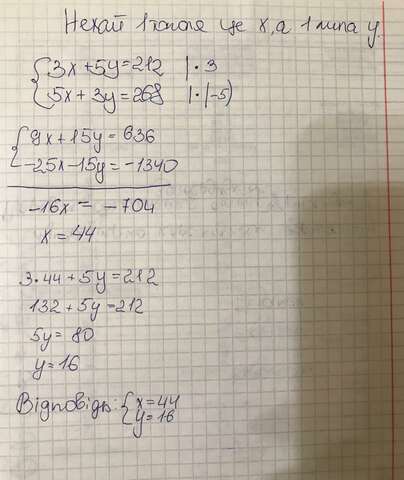 Нехай 1 тополя це x, а 1 липа y.
{3x+5y=212 |·3
{5x+3y=268 |·(-5)
{9x+15y=636
{-25x-15y=-1340
-16x=-704
x=44
3·44+5y=212
132+5y=212
5y=80
y=16
Відповідь: {x=44
{y=16